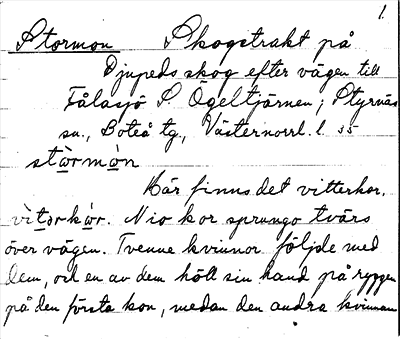 1.
Stormon Skogstrakt på
Djupeds skog efter vägen till
Fålasjö S. Ögeltjärnen; Styrnäs
sn., Boteå tg., Västernorrl. l. 35
stòrmòn
Här finns det vitterkor,
vìtərkòr. Nio kor sprungo tvärs
över vägen. Tvenne kvinnor följde med
dem, och en av dem höll sin hand på ryggen
på den första kon, medan den andra kvinnan